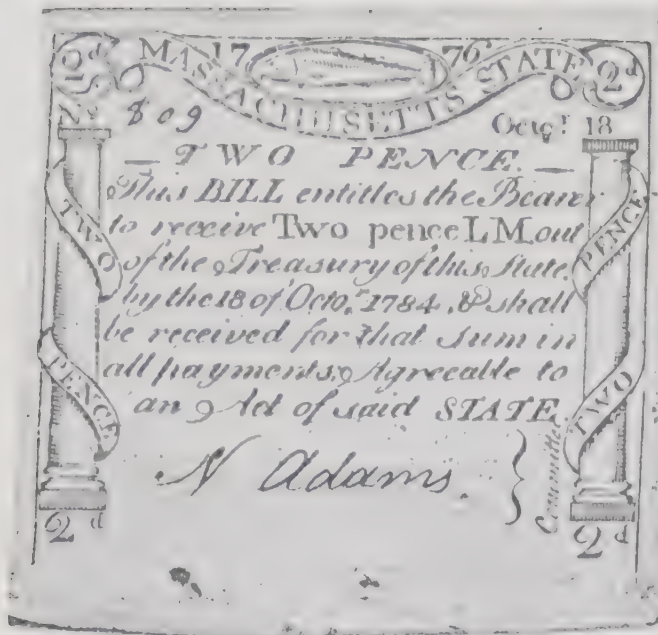 2d 17 76 2d
MASSACHUSETTS STATE
No 809 Octor. 18
— TWO PENCE. —
This BILL entitles the Bearer
to receive Two pence L M. out
of the Treasury of this State
by the 18 of Octor. 1784. & shall
be received for that sum in
all payments Agreeable to
an Act of said STATE.
TWO PENCE
PENCE TWO
N Adams.
} Committee
2d 2d